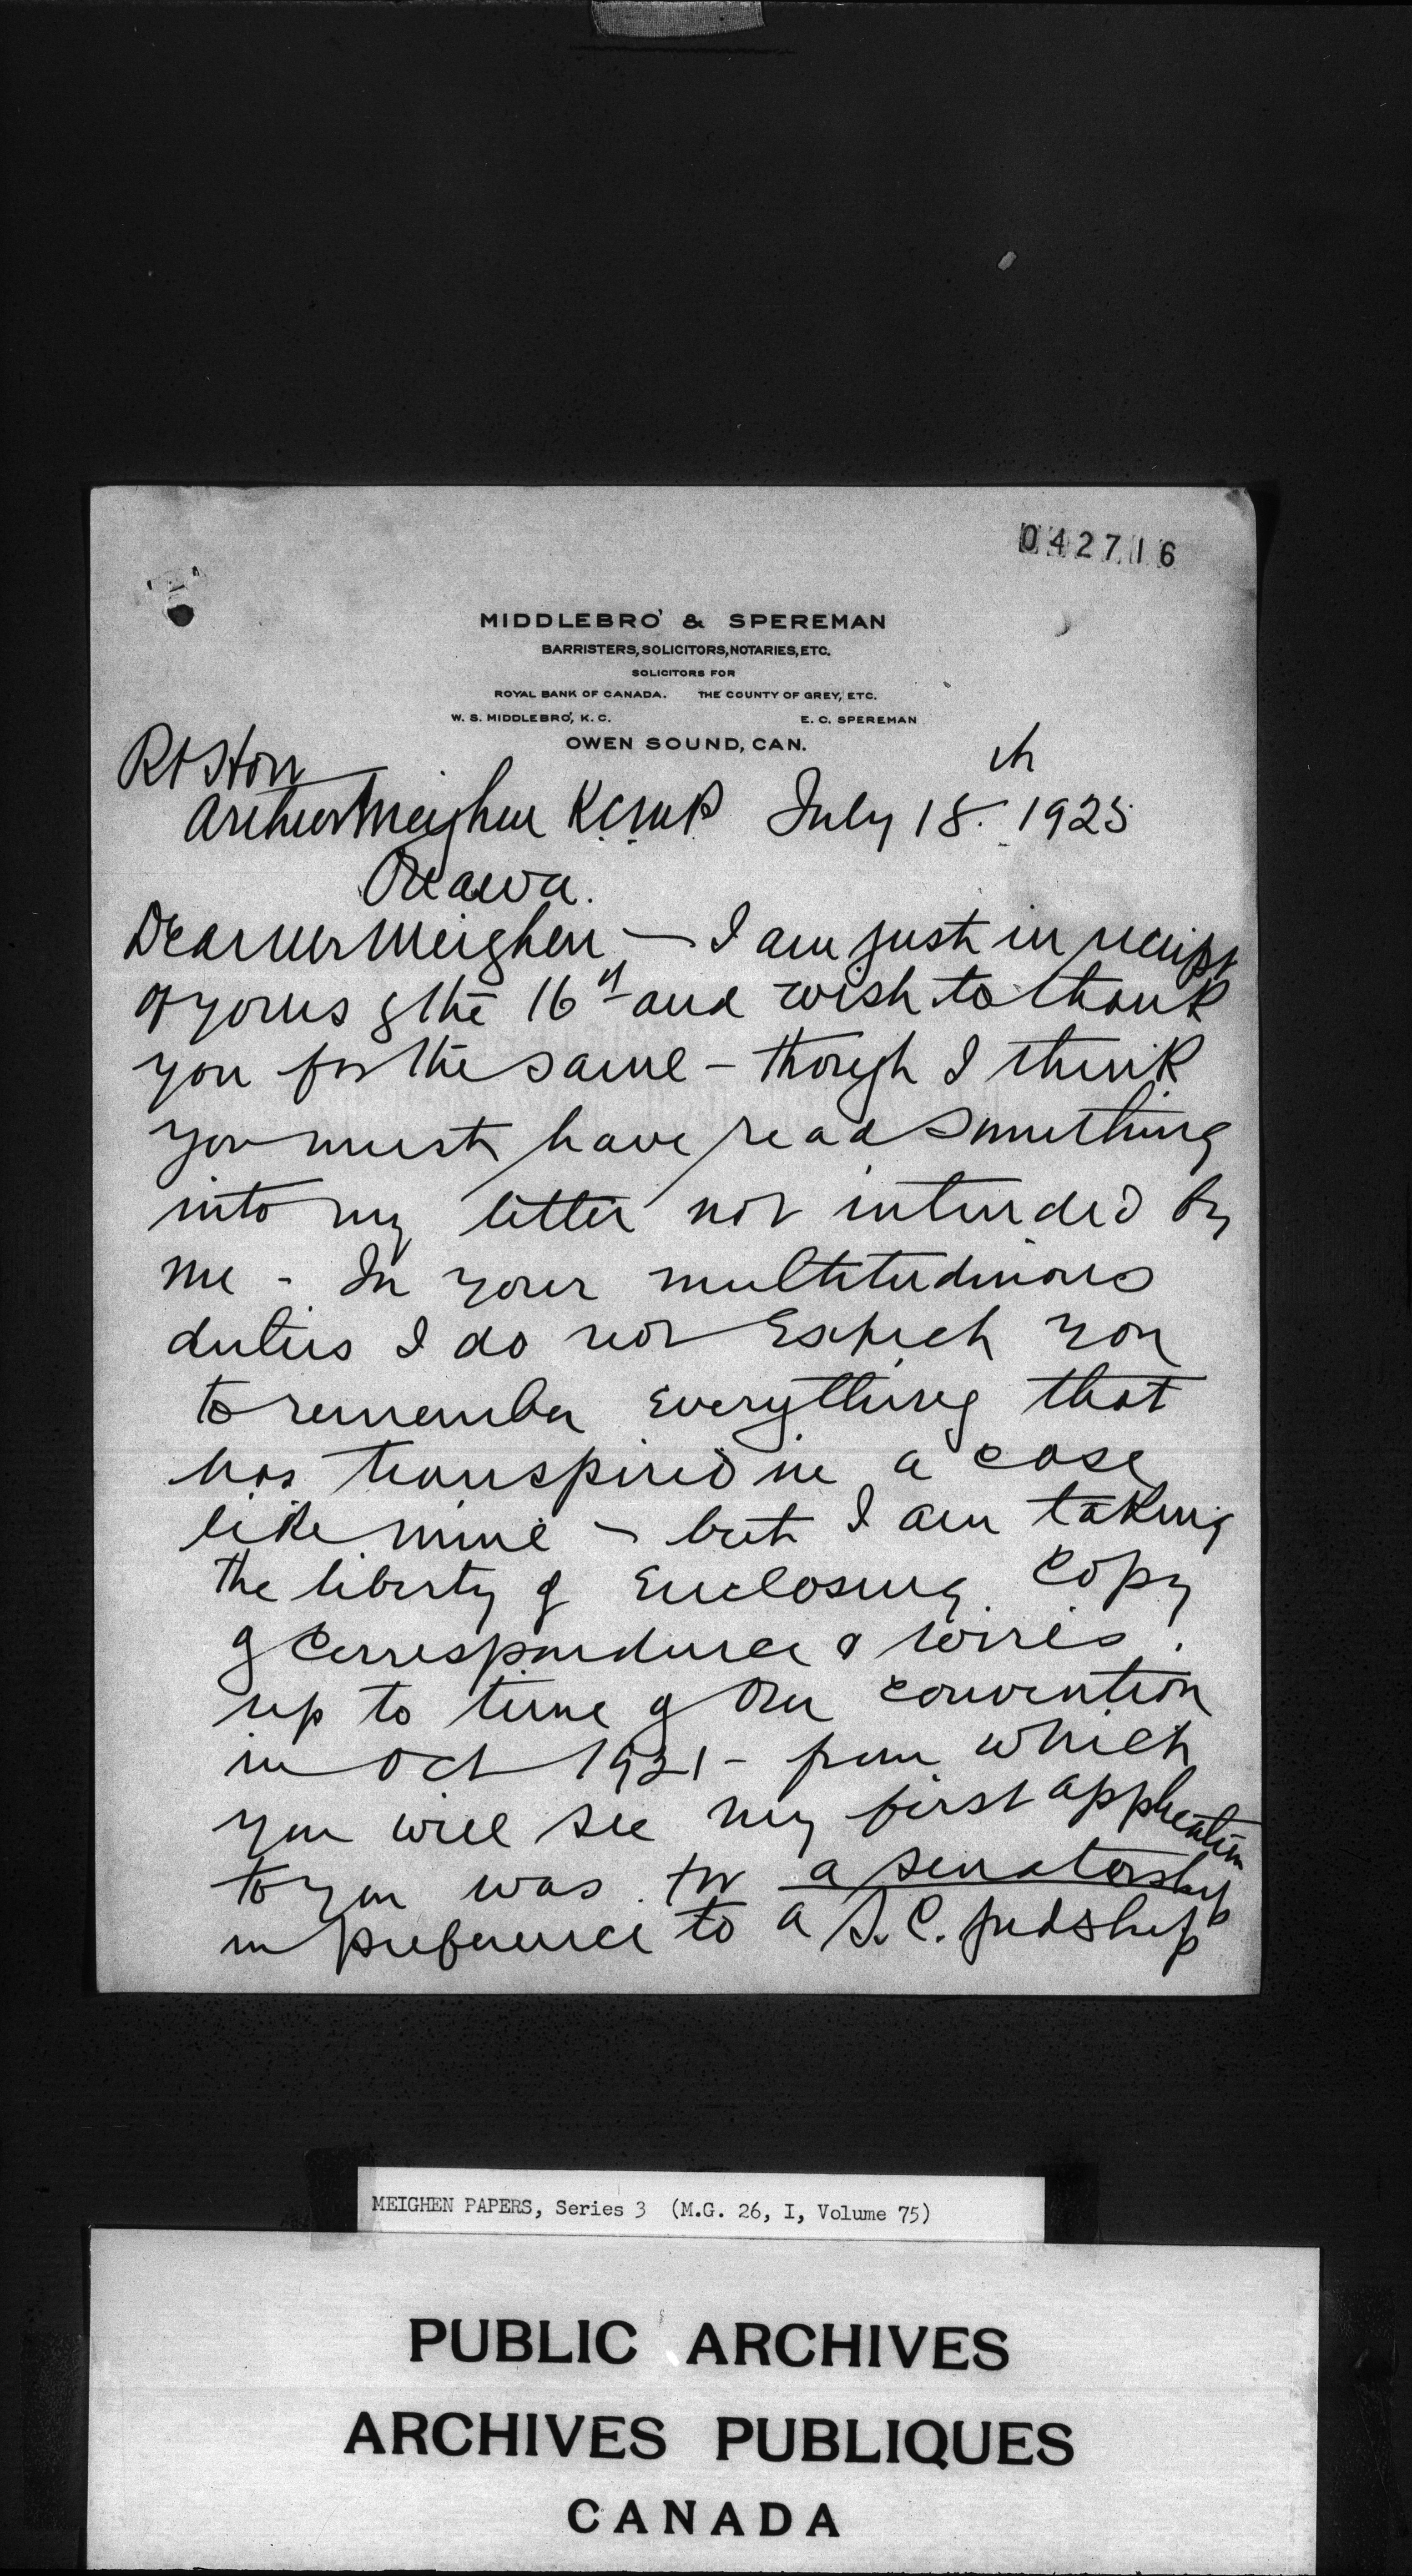 042716
MIDDLEBRO' & SPEREMAN
BARRISTERS, SOLICITORS, NOTARIES, ETC.
SOLICITORS FOR
ROYAL BANK OF CANADA. THE COUNTY OF GREY, ETC.
W. S. MIDDLEBRO', K. C. E. C. SPEREMAN
OWEN SOUND, CAN.
Rt Hon
Arthur Meighen K.C. M.P. July 18th 1925
Ottawa.
Dear Mr Meighen — I am just in receipt
of yours of the 16th and wish to thank
you for the same – though I think
you must have read something
into my letter not intended by
me - In your multitudinous
duties I do not Expect you
to remember Everything that
has transpired in a case
like mine – but I am taking
the liberty of Enclosing Copy
of Correspondence & wires
up to time of our convention
in Oct 1921 – from which
you will see my first application
to you was for a senatorship
in preference to a S.C. judship
MEIGHEN PAPERS, Series 3 (M.G. 26, I, Volume 75)
PUBLIC ARCHIVES
ARCHIVES PUBLIQUES
CANADA